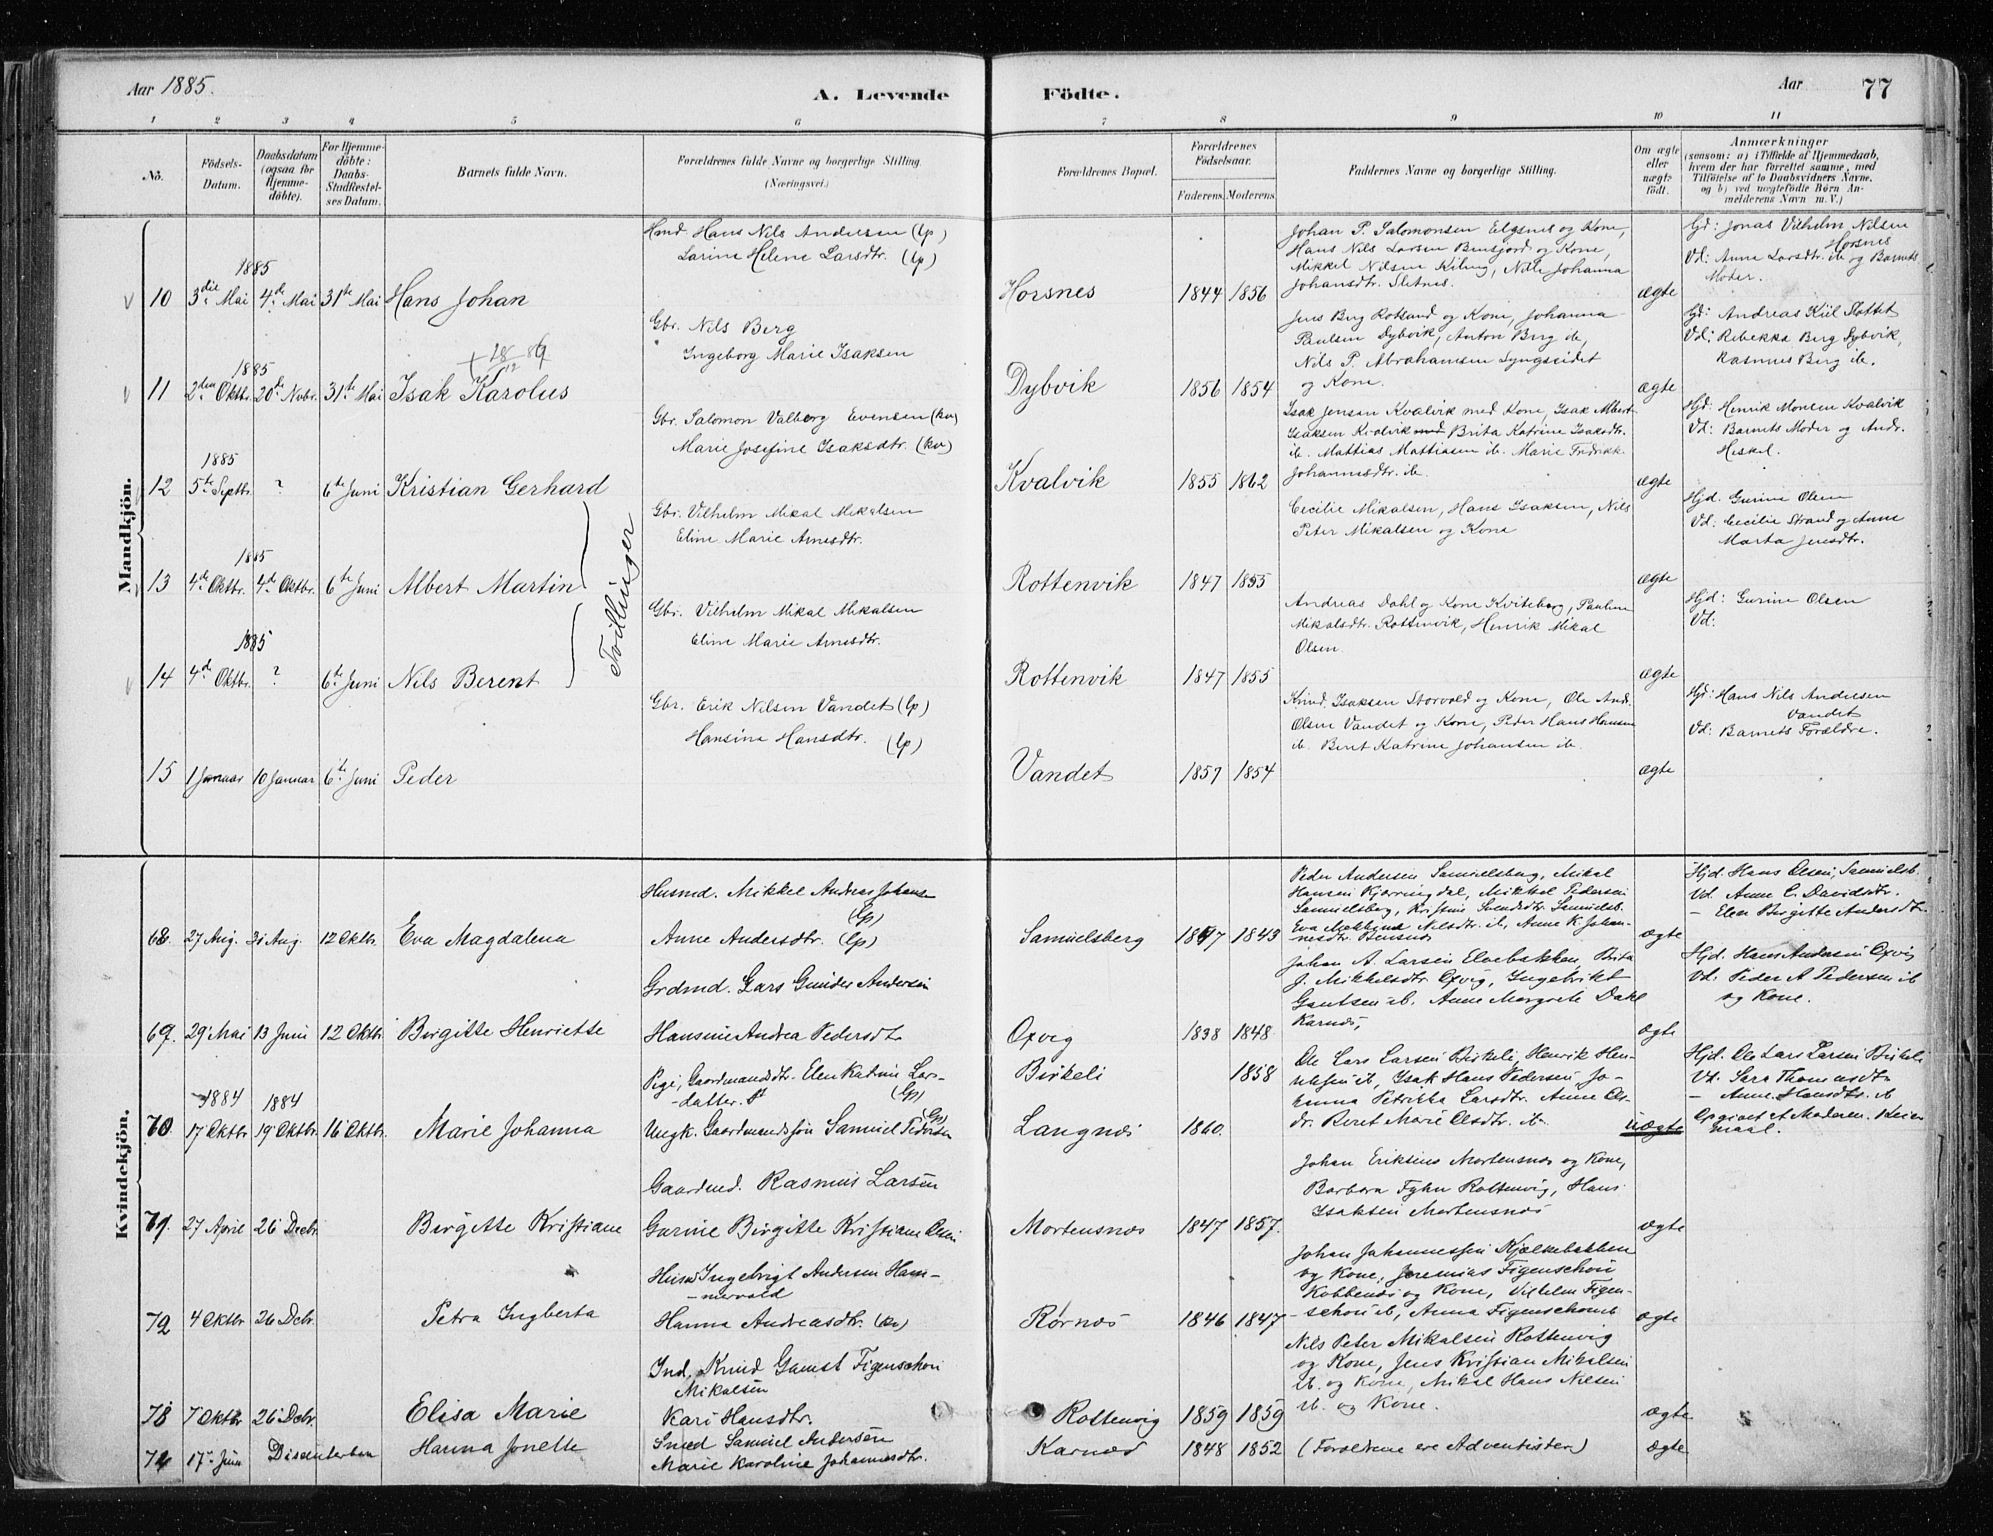 Aar 1885.
A. Levende
Födte.
Aar
77
1 2 3 4 5 6 7 8 9 10 11
No.
Födsels-
Datum.
Daabsdatum
(ogsaa for
Hjemme-
döbte).
For Hjemme-
döbte:
Daabs-
Stadfæstel-
ses Datum.
Barnets fulde Navn.
Forældrenes fulde Navne og borgerlige Stilling.
(Næringsvei.)
Forældrenes Bopæl.
Forældrenes
Födselsaar.
Faderens. Moderens.
Faddernes Navne og borgerlige Stilling.
Om ægte
eller
uægte
födt.
Anmærkninger
(saasom: a) i Tilfælde af Hjemmedaab,
hvem der har forrettet samme, med
Tilföielse af to Daabsvidners Navne,
og b) ved uægtefödte Börn An-
melderens Navn m. V.)
Mandkjön.
1885
10 3die Mai 4de Mai 31te Mai Hans Johan
Hmd. Hans Nils Andersen (lp)
Larine Helene Larsdtr. (lp)
Horsnes 1844 1856
Johan P. Salomonsen Elgsnes og Kone,
Hans Nils Larsen Bensjord og Kone,
Mikkel Nilsen Kilvug, Nille Johanna
Johansdtr. Sletnes.
ægte
Hjd: Jonas Vilhelm Nilsen
Horsnes
Vd: Anne Larsdtr. ib og Barnets
Moder.
1885
+ 28/12 86
11 2den Oktbr. 20de Novbr. 31te Mai Isak Karolus
Gbr. Nils Berg
Ingeborg Marie Isaksen
Dybvik 1856 1854
Jens Berg Rotsund og Kone, Johanna
Paulsen Dybvik, Anton Berg ib,
Nils P. Abrahamsen Lyngseidet
og Kone.
ægte
Hjd: Andreas Kiil Slottet
Vd: Rebekka Berg Dybvik,
Rasmus Berg ib.
1885
12 5te Septbr. ? 6te Juni Kristian Gerhard
Gbr. Salomon Valberg Evensen (kv)
Marie Josefine Isaksdtr. (kv)
Kvalvik 1855 1862
Isak Jensen Kvalvik med Kone, Isak Albert
Isaksen Kvalvik med Brita Katrine Isaksdtr.
ib. Mattias Mattiasen ib. Marie Fredrikk.
Johannesdtr. ib.
ægte
Hjd: Henrik Monsen Kvalvik
Vd: Barnets Moder og Andr.
Heskel.
1885
13 4de Oktbr. 4de Oktbr. 6te Juni Albert Martin
Tvillinger
Gbr. Vilhelm Mikal Mikalsen
Eline Marie Arnesdtr.
Rottenvik 1847 1855
Cecilie Mikalsen, Hans Isaksen, Nils
Peter Mikalsen og Kone
ægte
Hjd. Gurine Olsen
Vd: Cecilie Strand og Anne
Marta Jensdtr.
1885
14 4de Oktbr. ? 6te Juni Nils Berent
Gbr. Vilhelm Mikal Mikalsen
Eline Marie Arnesdtr.
Rottenvik 1847 1855
Andreas Dahl og Kone Kviteberg, Pauline
Mikalsdtr. Rottenvik, Henrik Mikal
Olsen.
ægte
Hjd: Gurine Olsen
Vd:
15 1 Januar 10 Januar 6te Juni Peder
Gbr. Erik Nilsen Vandet (lp)
Hansina Hansdtr. (lp)
Vandet 1857 1854
Knud Isaksen Storvold og Kone, Ole And.
Olsen Vandet og Kone, Peder Hans Hansen
ib. Beret Katrine Johansen ib.
ægte
Hjd: Hans Nils Andersen
Vandet
Vd: Barnets Forældre.
Kvindekjön.
68. 27 Aug. 31 Aug. 12 Oktbr. Eva Magdalena
Husmd. Mikkel Andreas Johans
(Lp)
Anne Andersdtr. (Lp)
Samuelsberg 1847 1843
Peder Andersen Samuelsberg, Mikal
Hansen Kjerringdal, Mikkel Pedersen
Samuelsberg, Kristine Svendsdtr. Samuelsb.
Eva Nilsdtr. ib, Anne K. Johan-
nesdtr. Bensnes
ægte
Hjd. Hans Olsen, Samuelsb.
Vd. Anne C. Davidsdtr.
– Elen Birgitte Andersdtr.
69. 29 Mai 13 Juni 12 Oktbr. Birgitte Henriette
Grdmd. Lars Gunder Andersen
Hansine Andrea Pedersdtr
Oxvig 1838 1848
Johan A. Larsen Elvebakken, Brita
J. Mikkelsdtr. Oxvig, Ingebrikt
Gautsen ib. Anne Margrete Dahl
Karnæs,
ægte
Hjd. Hans Andersen Oxvig
Vd. Peder A Pedersen ib
og Kone.
1884 1884
70. 17 Oktbr 19 Oktbr. 16 Oktbr. Marie Johanna
Pige, Gaardmandsdtr. Elen Katrine Lars-
datter. (Lp)
Ungk. Gaardmandssøn Samuel Pedersen (Lp)
Birkeli 1858
Langnæs 1860.
Ole Lars Larsen Birkeli, Henrik Hen-
riksen ib, Isak Hans Pedersen, Jo-
hanna Petrikka Larsdtr. Anne Ols-
dr. Beret Marie Olsdtr. ib.
uægte
Hjd. Ole Lars Larsen Birkeli
Vd. Sara Thomasdtr
– Anne Hansdtr. ib
Opgivet af Moderen. 1 Leier
maal.
71. 27 April 26 Decbr. Birgitte Kristiane
Gaardmd. Rasmus Larsen
Gurine Birgitte Kristiane Olsen
Mortensnæs 1847 1857.
Johan Eriksens Mortensnæs og Kone,
Barbara Fyhn Rottenvig, Hans
Isaksen Mortensnæs
ægte
72 4 Oktbr 26 Decbr. Petra Ingberta
Husmd Ingebrigt Andersen Ham-
mervold
Hanna Andreasdtr. (kv)
Rørnæs 1846 1847
Johan Johannessen Kjækebakken
og Kone, Jeremias Figenschou
Kobbenæs og Kone, Vilhelm Figen-
schou ib, Anna Figenschou ib
ægte
73 7 Oktbr 26 Decbr. Elisa Marie
Ind. Knud Gamst Figenschou
Mikalsen
Kari Hansdtr.
Rottenvig 1859 1859
Nils Peter Mikalsen Rottenvig
og Kone, Jens Kristian Mikalsen
ib. og Kone, Mikal Hans Nilsen
ib. og Kone.
ægte
74 17 Juni Dissenterbarn Hanna Jonette
Smed Samuel Andersen
Marie Karoline Johannesdtr.
Karnæs 1848 1852 (Forældrene ere Adventister) ægte